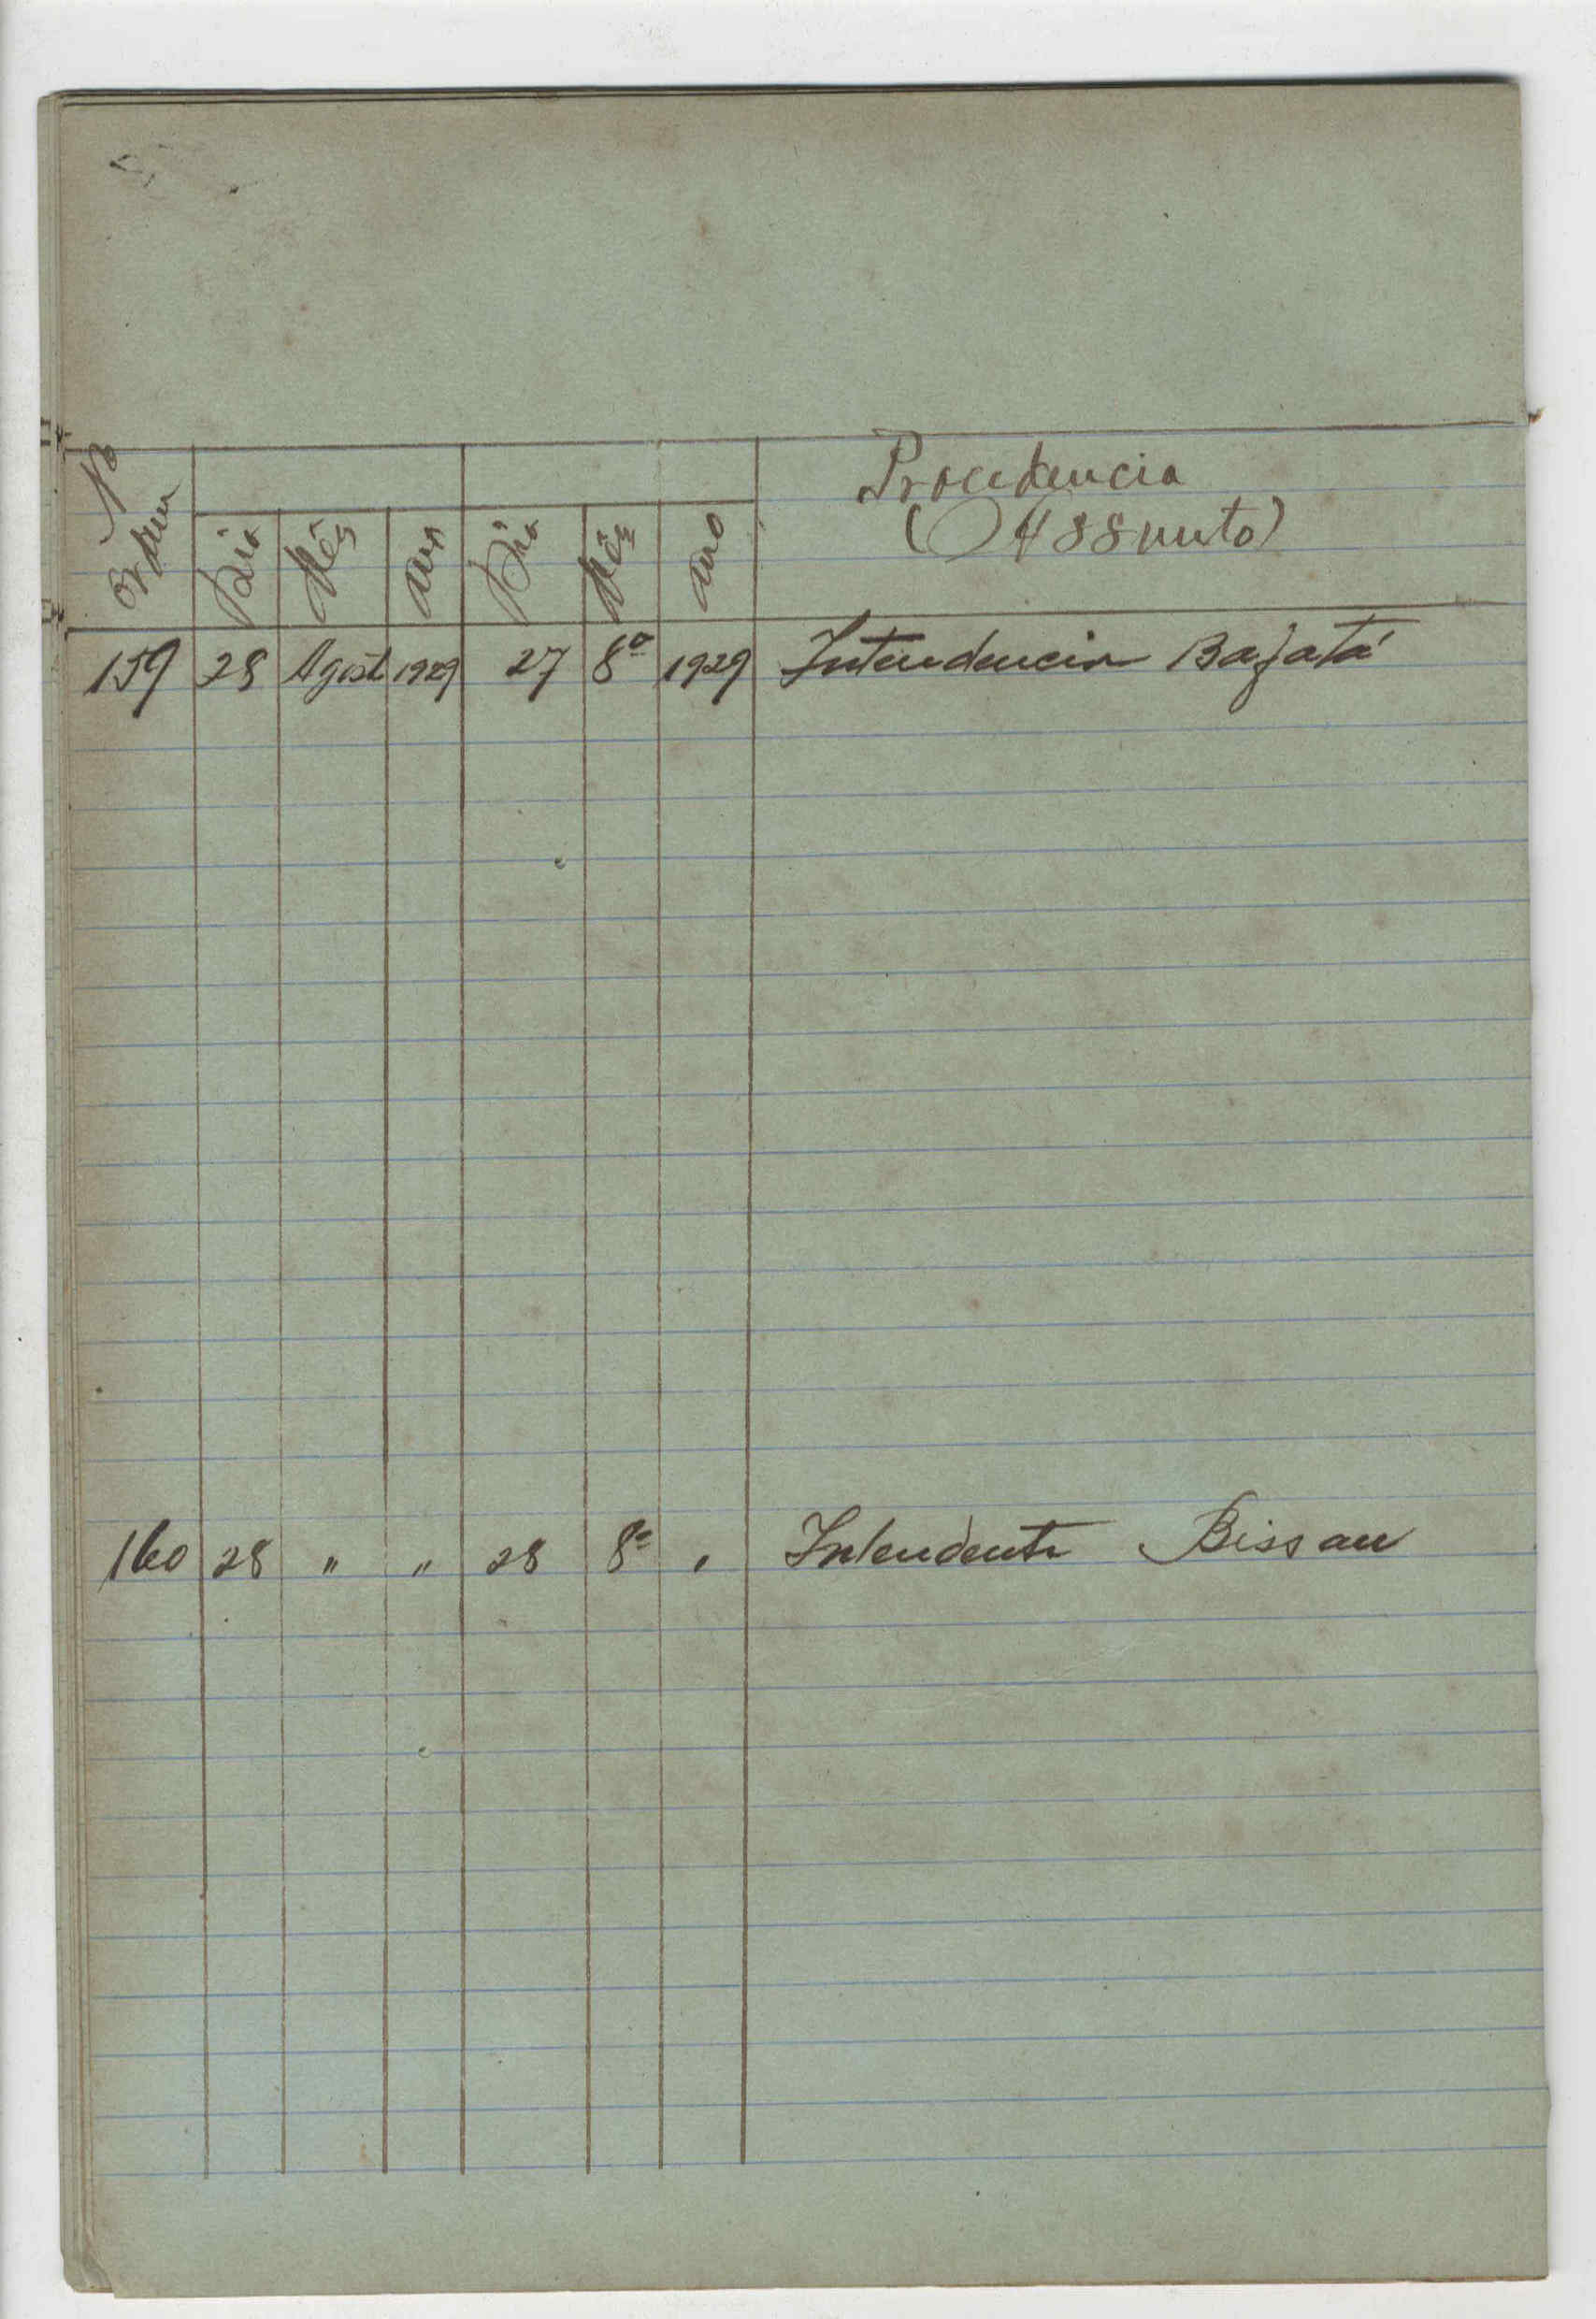 Nº Ordem Dia Mês ano Dia Mês ano Procedencia
(O Assunto)
159 28 Agost 1929 27 8º 1929 Intendencia Bafatá
160 28 " " 28 8º " Intendente Bissau